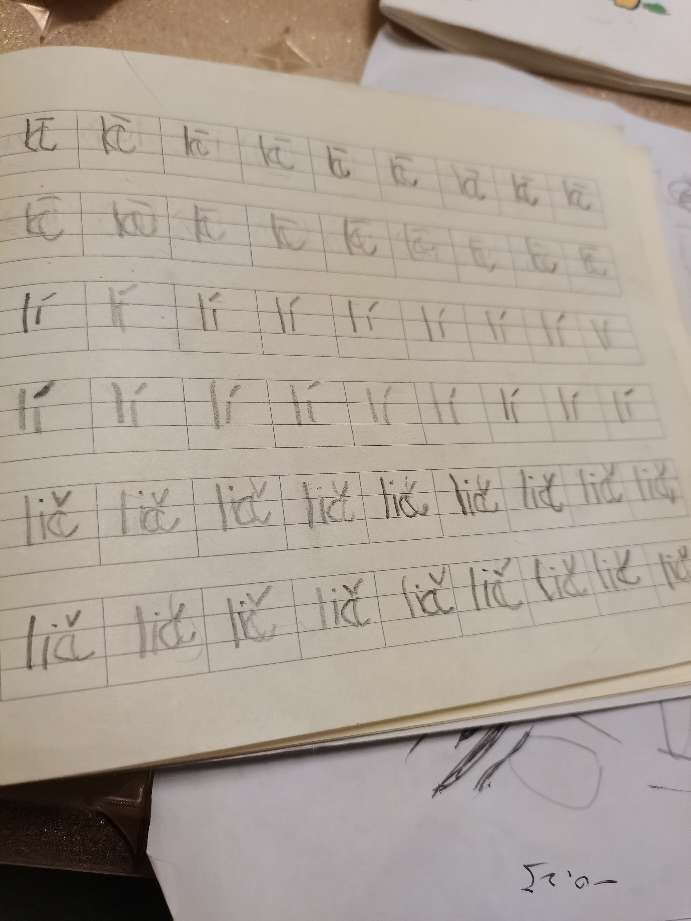 kē kē kē kē kē kē kē kē kē
kē kē kē kē kē kē kē kē kē
lí lí lí lí lí lí lí lí lí
lí lí lí lí lí lí lí lí lí
liǎ liǎ liǎ liǎ liǎ liǎ liǎ liǎ liǎ
liǎ liǎ liǎ liǎ liǎ liǎ liǎ liǎ liǎ